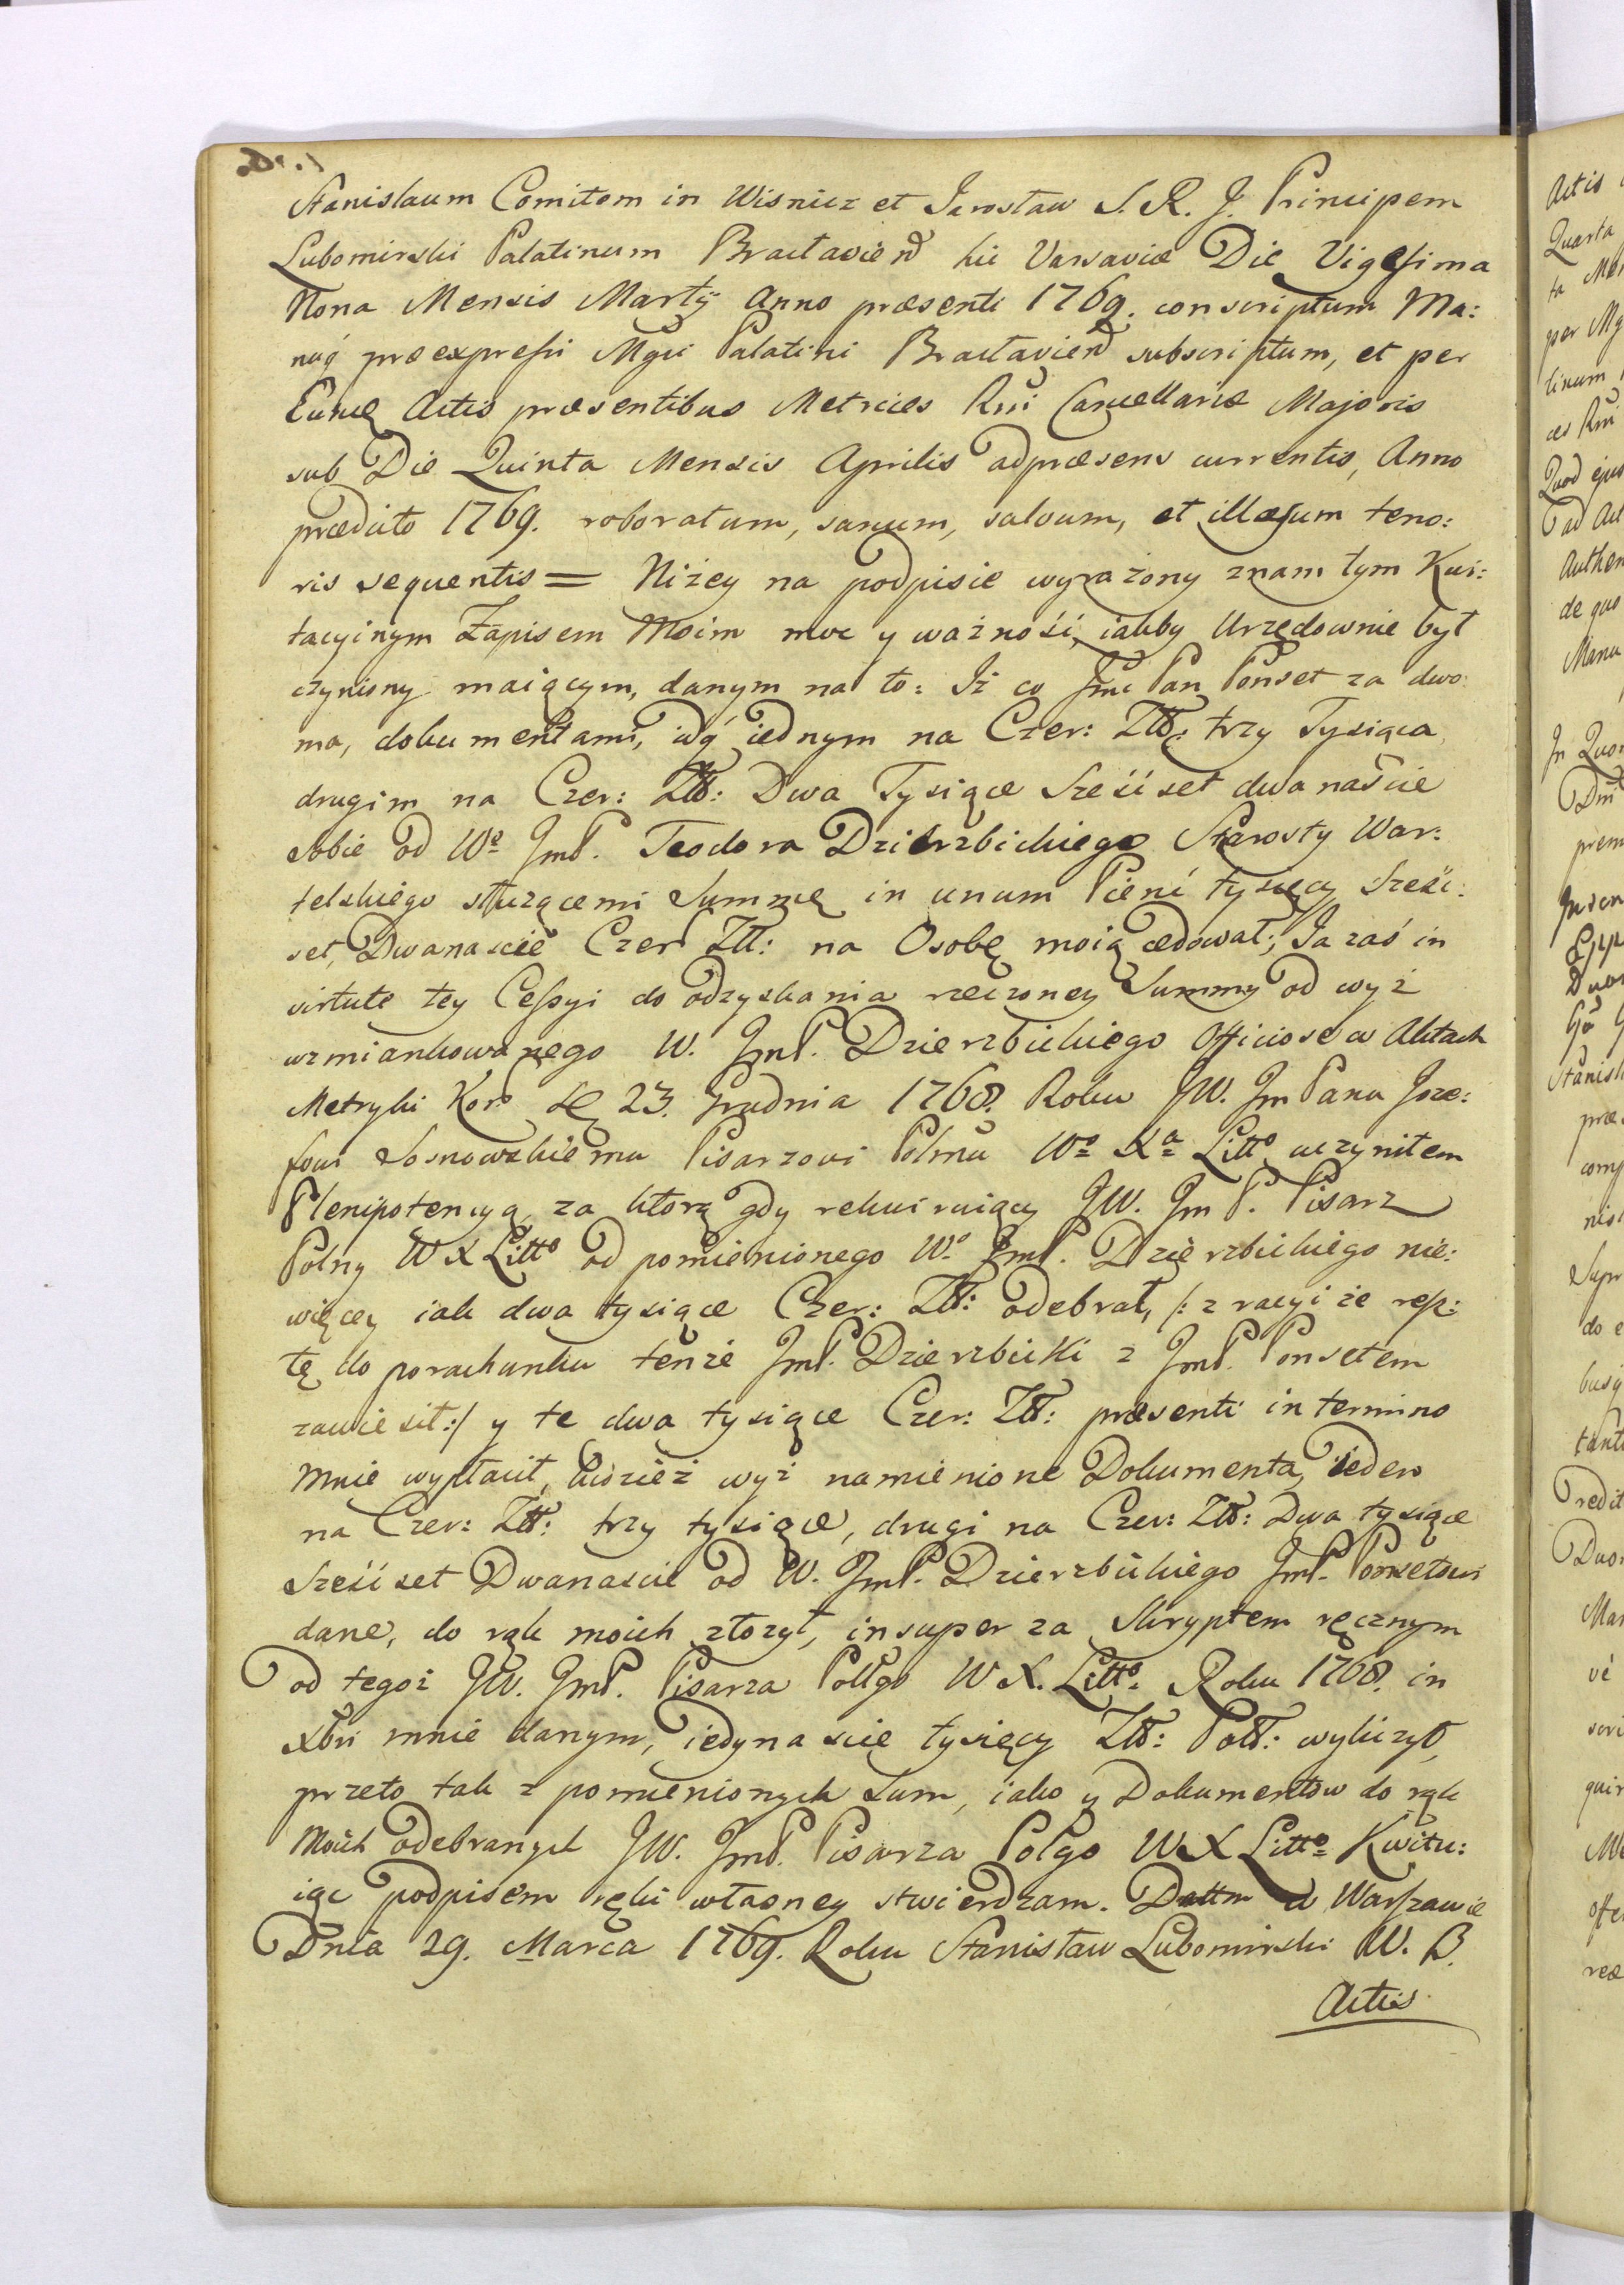 Stanislaum Comitem in Wisnicz et Jarosław S. R. J. Principem
Lubomirski Palatinum Braclavien hic Varsaviæ Die Vigesima
Nona Mensis Martÿ Anno præsenti 1769. conscriptum Ma:
nuq́ præexpressi Mgci Palatini Braclavien subscriptum, et per
Eunđ Actis præsentibus Metrices Rni Cancellariæ Majoris
sub Die Quinta Mensis Aprilis adpræsens currentis, Anno
prædicto 1769. roboratum, sanum, salvum, et illæsum teno:
ris sequentis = Niżey na podpisie wyrażony znam tym Kwi:
tacyinym Zapisem Moim moc y ważność, iakby Urzędownie był
czyniony maiącym, danym na to: Iż co Jmc Pan Ponset za dwo:
ma, dokumentami, idq́ iednym na Czer: Złł: trzy Tysiąca
drugim na Czer: Złł: Dwa Tysiące Sześćset dwanaście
sobie od Wo JmP. Teodora Dzierzbickiego Starosty War:
telskiego służącemi Summę in unum Pieńć tysięcy Sześć:
set, Dwanaście Czer Złł: na Osobę moią cedował; Ja zaś in
virtute tey Cessyi do odzyskania rzeczoney Summy od wyż
wzmiankowanego W. JmP. Dzierzbickiego Officiose w Aktach
Metryki Kor de 23. Grudnia 1768. Roku JW. Jm Panu Joze:
fowi Sosnowskiemu Pisarzowi Polmu Wo Xa Litto uczyniłem
Plenipotencyą, za którą gdy rekwiruiący JW. Jm P. Pisarz
Polny W X Litto od pomienionego Wo JmP. Dzierzbickiego nie:
więcey iak dwa tysiące Czer: Złł: odebrał, /: z racyi że resz:
tę do porachunku tenże JmP. Dzierzbicki z JmP. Ponsetem
zawiesił:/ y te dwa tysiące Czer: Złł: præsenti in termino
mnie wypłacił, tudzież wyż namienione Dokumenta, ieden
na Czer: Złł: trzy tysiące, drugi na Czer: Złł: Dwa tysiące
Sześćset Dwanaście od W. JmP. Dzierzbickiego JmP. Ponsetowi
dane, do rąk moich złożył, insuper za Skryptem ręcznym
od tegoż JW. JmP. Pisarza Pollgo W X. Litto Roku 1768. in
Xbri mnie danym, iedynaście tysięcy Złł: Poll: wyliczył,
przeto tak z pomienionych Sum, iako y Dokumentow do rąk
Moich odebranych JW. JmP. Pisarza Polgo W X Litto Kwitu:
iąc podpisem ręki własney stwierdzam. Dattm w Warszawie
Dnia 29. Marca 1769. Roku Stanisław Lubomirski W. B.
Actis